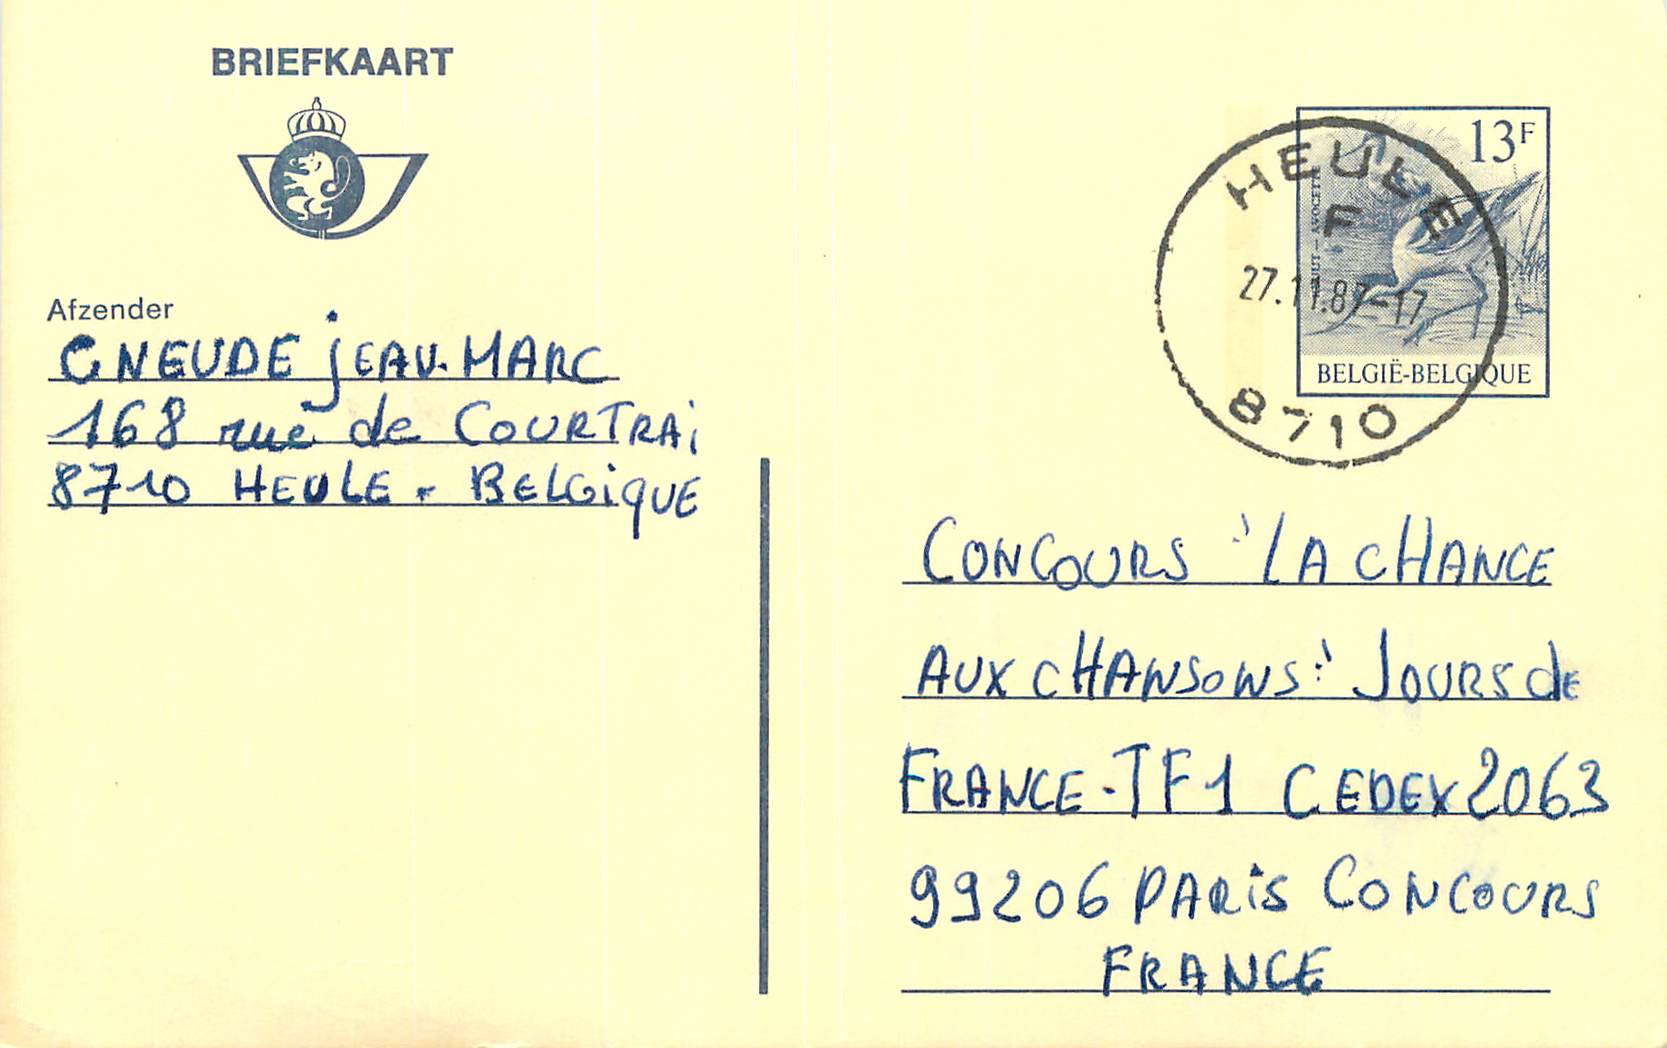 BRIEFKAART
Afzender
GNEUDE jEAN-MARC
168 rue de COURTRAi
8710 HEULE - BELGiQUE
13F
KLUUT — AVOCETTE
BELGIË-BELGIQUE
HEULE
F
27.11.87-17
8710
CONCOURS "LA CHANCE
AUX CHANSONS" JOURS de
FRANCE-TF1 CEDEX 2063
99206 PARiS CONCOURS
FRANCE